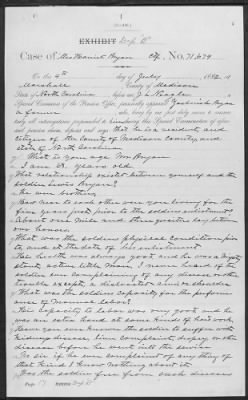 EXHIBIT Dep D
Case of Mrs Harriet Bryan No. 71,679
On this 4th day of July 1882, at
Marshall County of Madison
State of North Carolina before me J. L. Keagler
Special Examiner of the Pension Office, personally appeared Bryan
a farmer who, being by me first duly sworn to answer
truly all interrogatories propounded to him during this Special Examination of aforesaid
pension claim, deposes and says that he is a resident and
citizen of the County of Madison County and
State of North Carolina
What is your age Mr Bryan
I am years old.
What relationship exists between yourself and the
soldier Bryan?
We were brothers
How near to each other were you living for the
five years just prior to the soldiers enlistment
About one mile and then greater day between
our houses
What was the soldiers physical condition prior
to and at the date of his enlistment
His health was always good and he was a
stout active little man. I never heard of the
soldier ever complaining of any disease or other
trouble except a dislocated shoulder
What was the soldiers capacity for the perform
ance of manual labor?
His capacity to labor was very good and he
was an extra hand at some kinds of work
Have you ever known the soldier to suffer with
kidney disease, liver complaint, dropsy or other
disease before he went into the service
No sir if he ever complained of any thing of
that kind I know nothing about it
Was the soldier free from such disease
Page 17